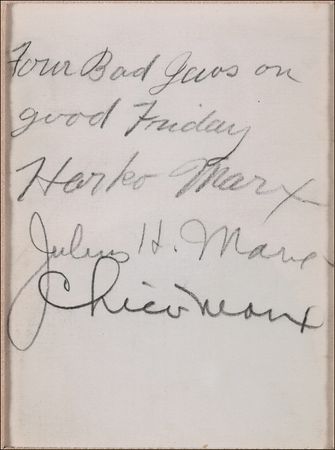 Four Bad Jews on
good Friday
Harpo Marx
Julius H. Marx
Chico Marx